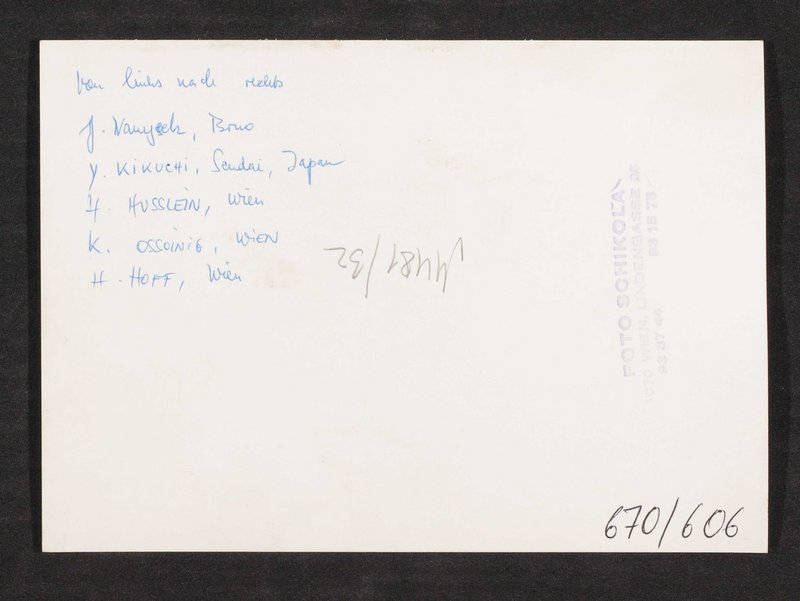 von links nach rechts
J. Vanysek, Brno
Y. KIKUCHI, Sendai, Japan
H. HUSSLEIN, Wien
K. OSSOINIG, WIEN
H. HOFF, Wien
14481/32
FOTO SCHIKOLA
1070 WIEN, LINDENGASSE
93 37 44 93 15 73
670/606